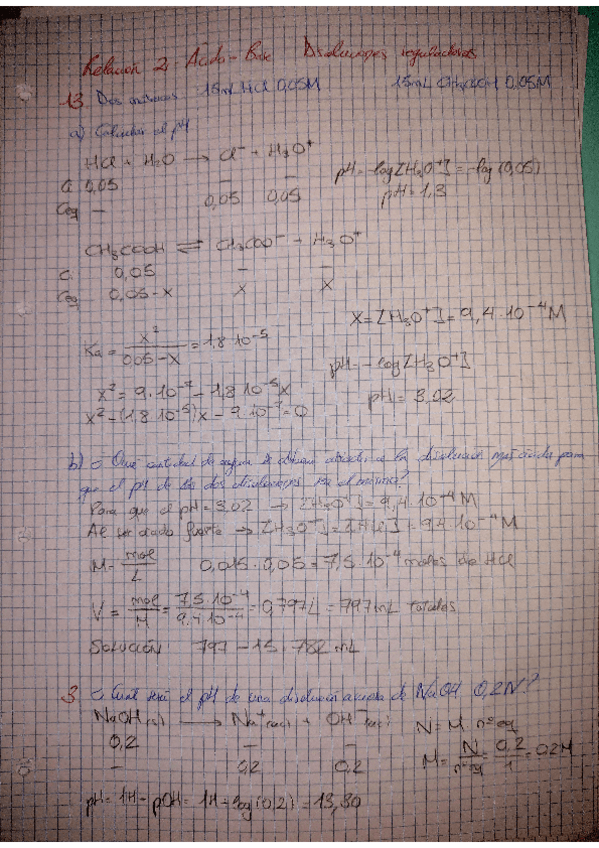 Relación 2 Ácido-Base Disoluciones reguladoras
13 Dos matraces 15mL HCl 0,05M 15mL CH3COOH 0,05M
a) Calcular el pH
HCl + H2O → Cl- + H3O+
Ci 0,05 — —
Ceq — 0,05 0,05
pH = -log[H3O+] = -log(0,05)
pH = 1,3
CH3COOH ⇌ CH3COO- + H3O+
Ci 0,05 — —
Ceq 0,05-x x x
x = [H3O+] = 9,4·10^-4 M
Ka = x^2/0,05-x = 1,8·10^-5
pH = -log[H3O+]
x^2 = 9·10^-7 - 1,8·10^-5x
pH = 3,02
x^2 - (1,8·10^-5)x - 9·10^-7 = 0
b) ¿Qué cantidad de agua a la disolución para
que el pH de las dos disoluciones sea el mismo?
Para que el pH = 3,02 → [H3O+] = 9,4·10^-4 M
Al ser ácido fuerte → [H3O+] = [HCl] = 9,4·10^-4 M
M = mol/L 0,015·0,05 = 7,5·10^-4 moles de HCl
V = mol/M = 7,5·10^-4/9,4·10^-4 = 0,797L = 797mL totales
Solución: 797 - 15 = 782 mL
3 ¿Cuál será el pH de una disolución acuosa de NaOH 0,2N?
NaOH(s) → Na+(ac) + OH-(ac) N = M nºeq
0,2 — —
— 0,2 0,2
M = N/nºeq = 0,2/1 = 0,2M
pH = 14 - pOH = 14 - log(0,2) = 13,30